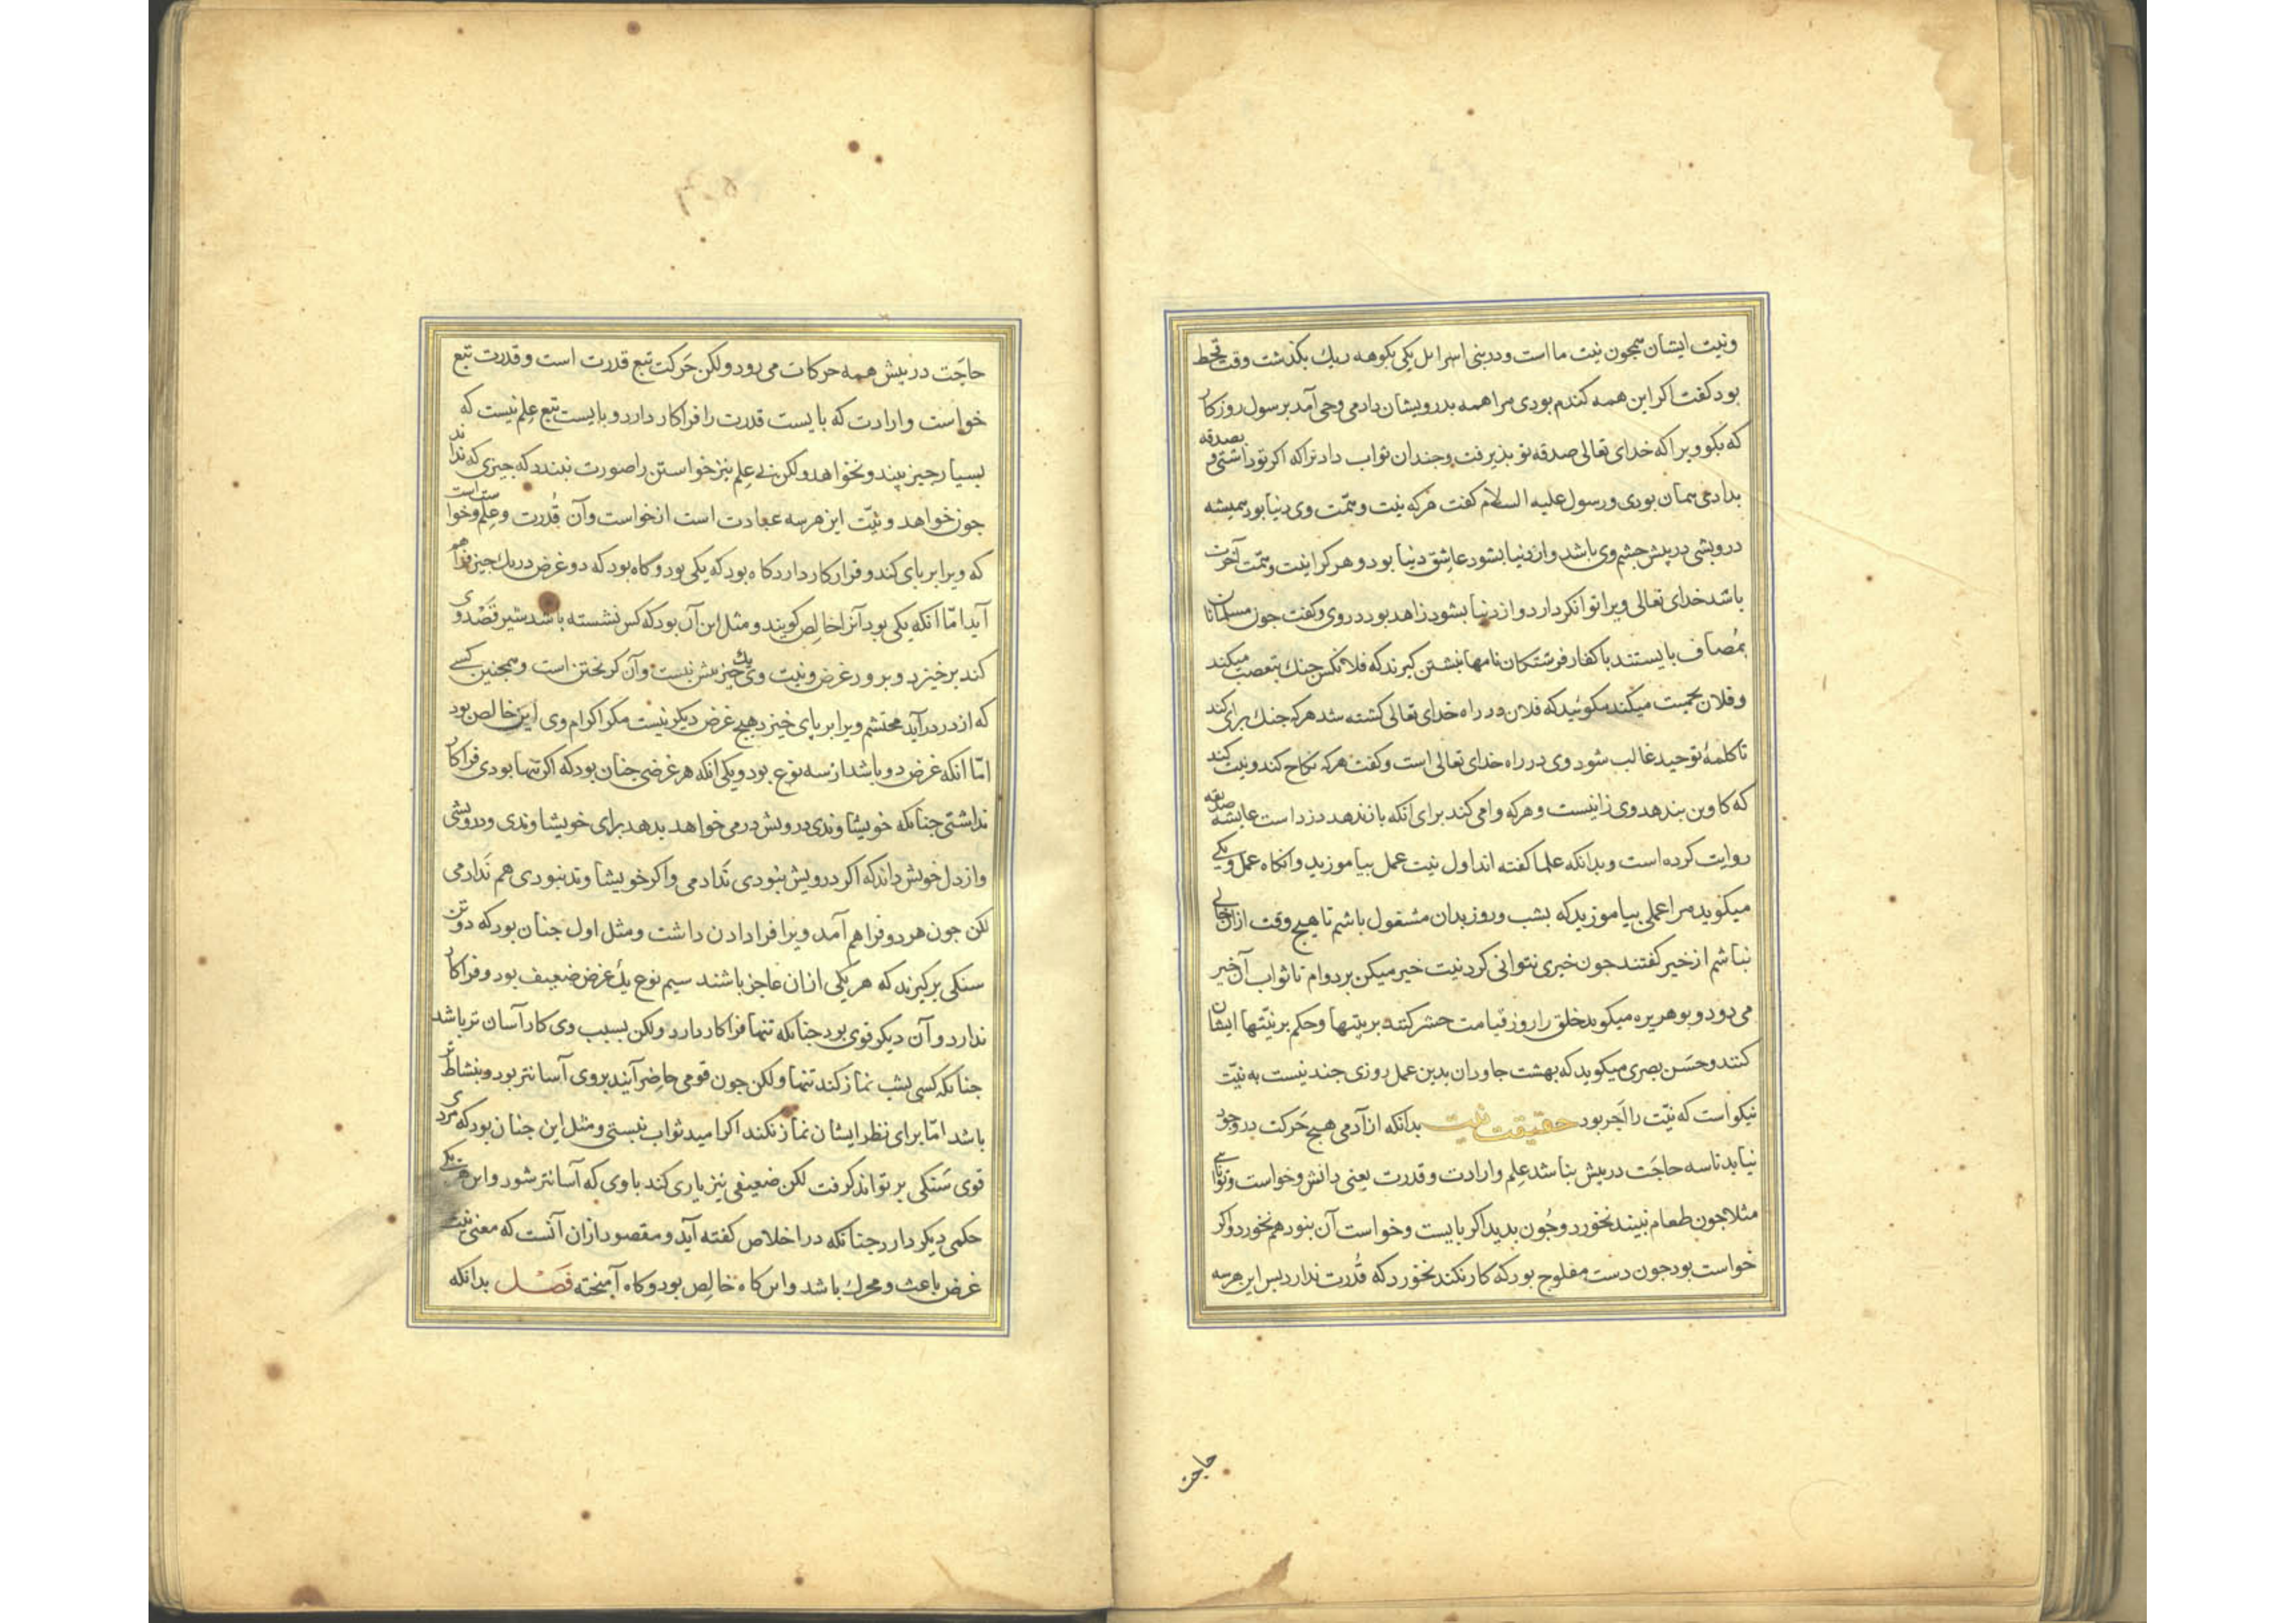 ونیت ایشان همچون نیت ما است و در بنی اسرایل یکی بکوهه ریك بکذشت وقت قحط
بود کفت اکر این همه کندم بودی مرا همه بدرویشان دادمی وحی آمد برسول روزکار
که بکو ویرا که خدای تعالی صدقه تو بذیرفت وجندان ثواب داد تراکه اکر تو داشتی و بصدقه
بدادمی همان بودی ورسول علیه السلام کفت هرکه نیت وهمّت وی دنیا بود همیشه
درویشی در پیش جشم وی باشد واز دنیا بشود عاشق دنیا بود و هر کرا نیت وهمّت آخرت
باشد خدای تعالی ویرا توانکر دارد و از دنیا بشود زاهد بود در وی وکفت جون مسلمانان
بمُصاف بایستند با کفار فرشتکان نامها نبشتن کیرند که فلانکس جنك بتعصب میکند
وفلان بحمیت میکند مکوئید که فلان در راه خدای تعالی کشته شد هرکه جنك برای کند
تا کلمهٔ توحید غالب شود وی در راه خدای تعالی است وکفت هرکه نکاح کند ونیت کند
که کاوین بندهد وی زانیست وهرکه وامی کند برای انکه باز ندهد دزد است عایشه صدیقه
روایت کرده است وبدانکه علما کفته اند اول نیت عمل بیاموزید وانکاه عمل ویکی
میکوید مرا عملی بیاموزید که بشب وروز بدان مشغول باشم تا هیچ وقت ازان خالی
نباشم از خیر کفتند جون خیری نتوانی کرد نیت خیر میکن بر دوام تا ثواب آن خیر
می دود و بوهریره میکوید خلق را روز قیامت حشر کنند بر نیتها وحکم بر نیتها ایشان
کنند وحسَن بصری میکوید که بهشت جاودان بدین عمل روزی جند نیست به نیّت
نیکو است که نیّت را آجر بود حقیقت نیت بدانکه از آدمی هیچ حَرکت در وجود
نیاید تا سه حاجَت در پیش بناشد عِلم وارادت وقدرت یعنی دانش وخواست وتوانائی
مثلا جون طعام نبیند نخورد وجُون بدید اکر بایست وخواست آن بنود هم نخورد واکر
خواست بود جون دست مفلوج بود که کار نکند نخورد که قُدرت ندارد بس این هرسه
حاجت
حاجَت در پیش همه حرکات می رود ولکن حَرکت تبع قدرت است و قدرت تبع
خواست وارادت که بایست قدرت را فرا کار دارد و بایست تبع عِلم نیست که
بسیار جیز بیند ونخواهد ولکن بی عِلم نیز خواستن را صورت نبندد که جیزی که نداند
جون خواهد ونیّت این هر سه عبادت است از خواست وآن قُدرت وعِلم وخواست است
که ویرا بر پای کند وفرا کار دارد کاه بود که یکی بود وکاه بود که دو غرض در یك جیز فراهم
آید امّا انکه یکی بود آنرا خالِص کویند ومثل این آن بود که کس نشسته باشد شیر قصْد وی
کند بر خیزد و برود غرض ونیت وی یك جیز بیش نیست وآن کریختن است وهمجنین کسی
که از در درآید محتشم ویرا بر پای خیزد هیچ غرض دیکر نیست مکر اکرام وی این خالص بود
امّا انکه غرض دو باشد از سه نوع بود ویکی انکه هر غرضی جنان بود که اکر تنها بودی فرا کار
نداشتی جنانکه خویشاوندی درویش درمی خواهد بدهد برای خویشاوندی ودرویشی
واز دل خویش داند که اکر درویش بنودی نَدادمی واکر خویشاوند نبودی هم نَدادمی
لکن جون هردو فراهم آمد ویرا فرا دادن داشت ومثل اول جنان بود که دو تن
سنکی برکیرند که هر یکی ازان عاجز باشند سیم نوع یك غرض ضعیف بود وفرا کار
ندارد وآن دیکر قوی بود جنانکه تنها فرا کار دارد ولکن بسبب وی کار آسان تر باشد
جنانکه کسی بشب نماز کند تنها ولکن جون قومی حاضِر آیند بروی آسانتر بود وبنشاط تر
باشد امّا برای نظر ایشان نماز نکند اکر امید ثواب نبستی ومثل این جنان بود که مردی
قوی سَنکی بر تواند کرفت لکن ضعیفی نیز یاری کند با وی که آسانتر شود واین هر یکی
حکمی دیکر دارد جنانکه در اخلاص کفته آید ومقصود ازان آنست که معنی نیت
غرض باعث ومحرك باشد واین کاه خالِص بود وکاه آمیخته فَصْل بدانکه